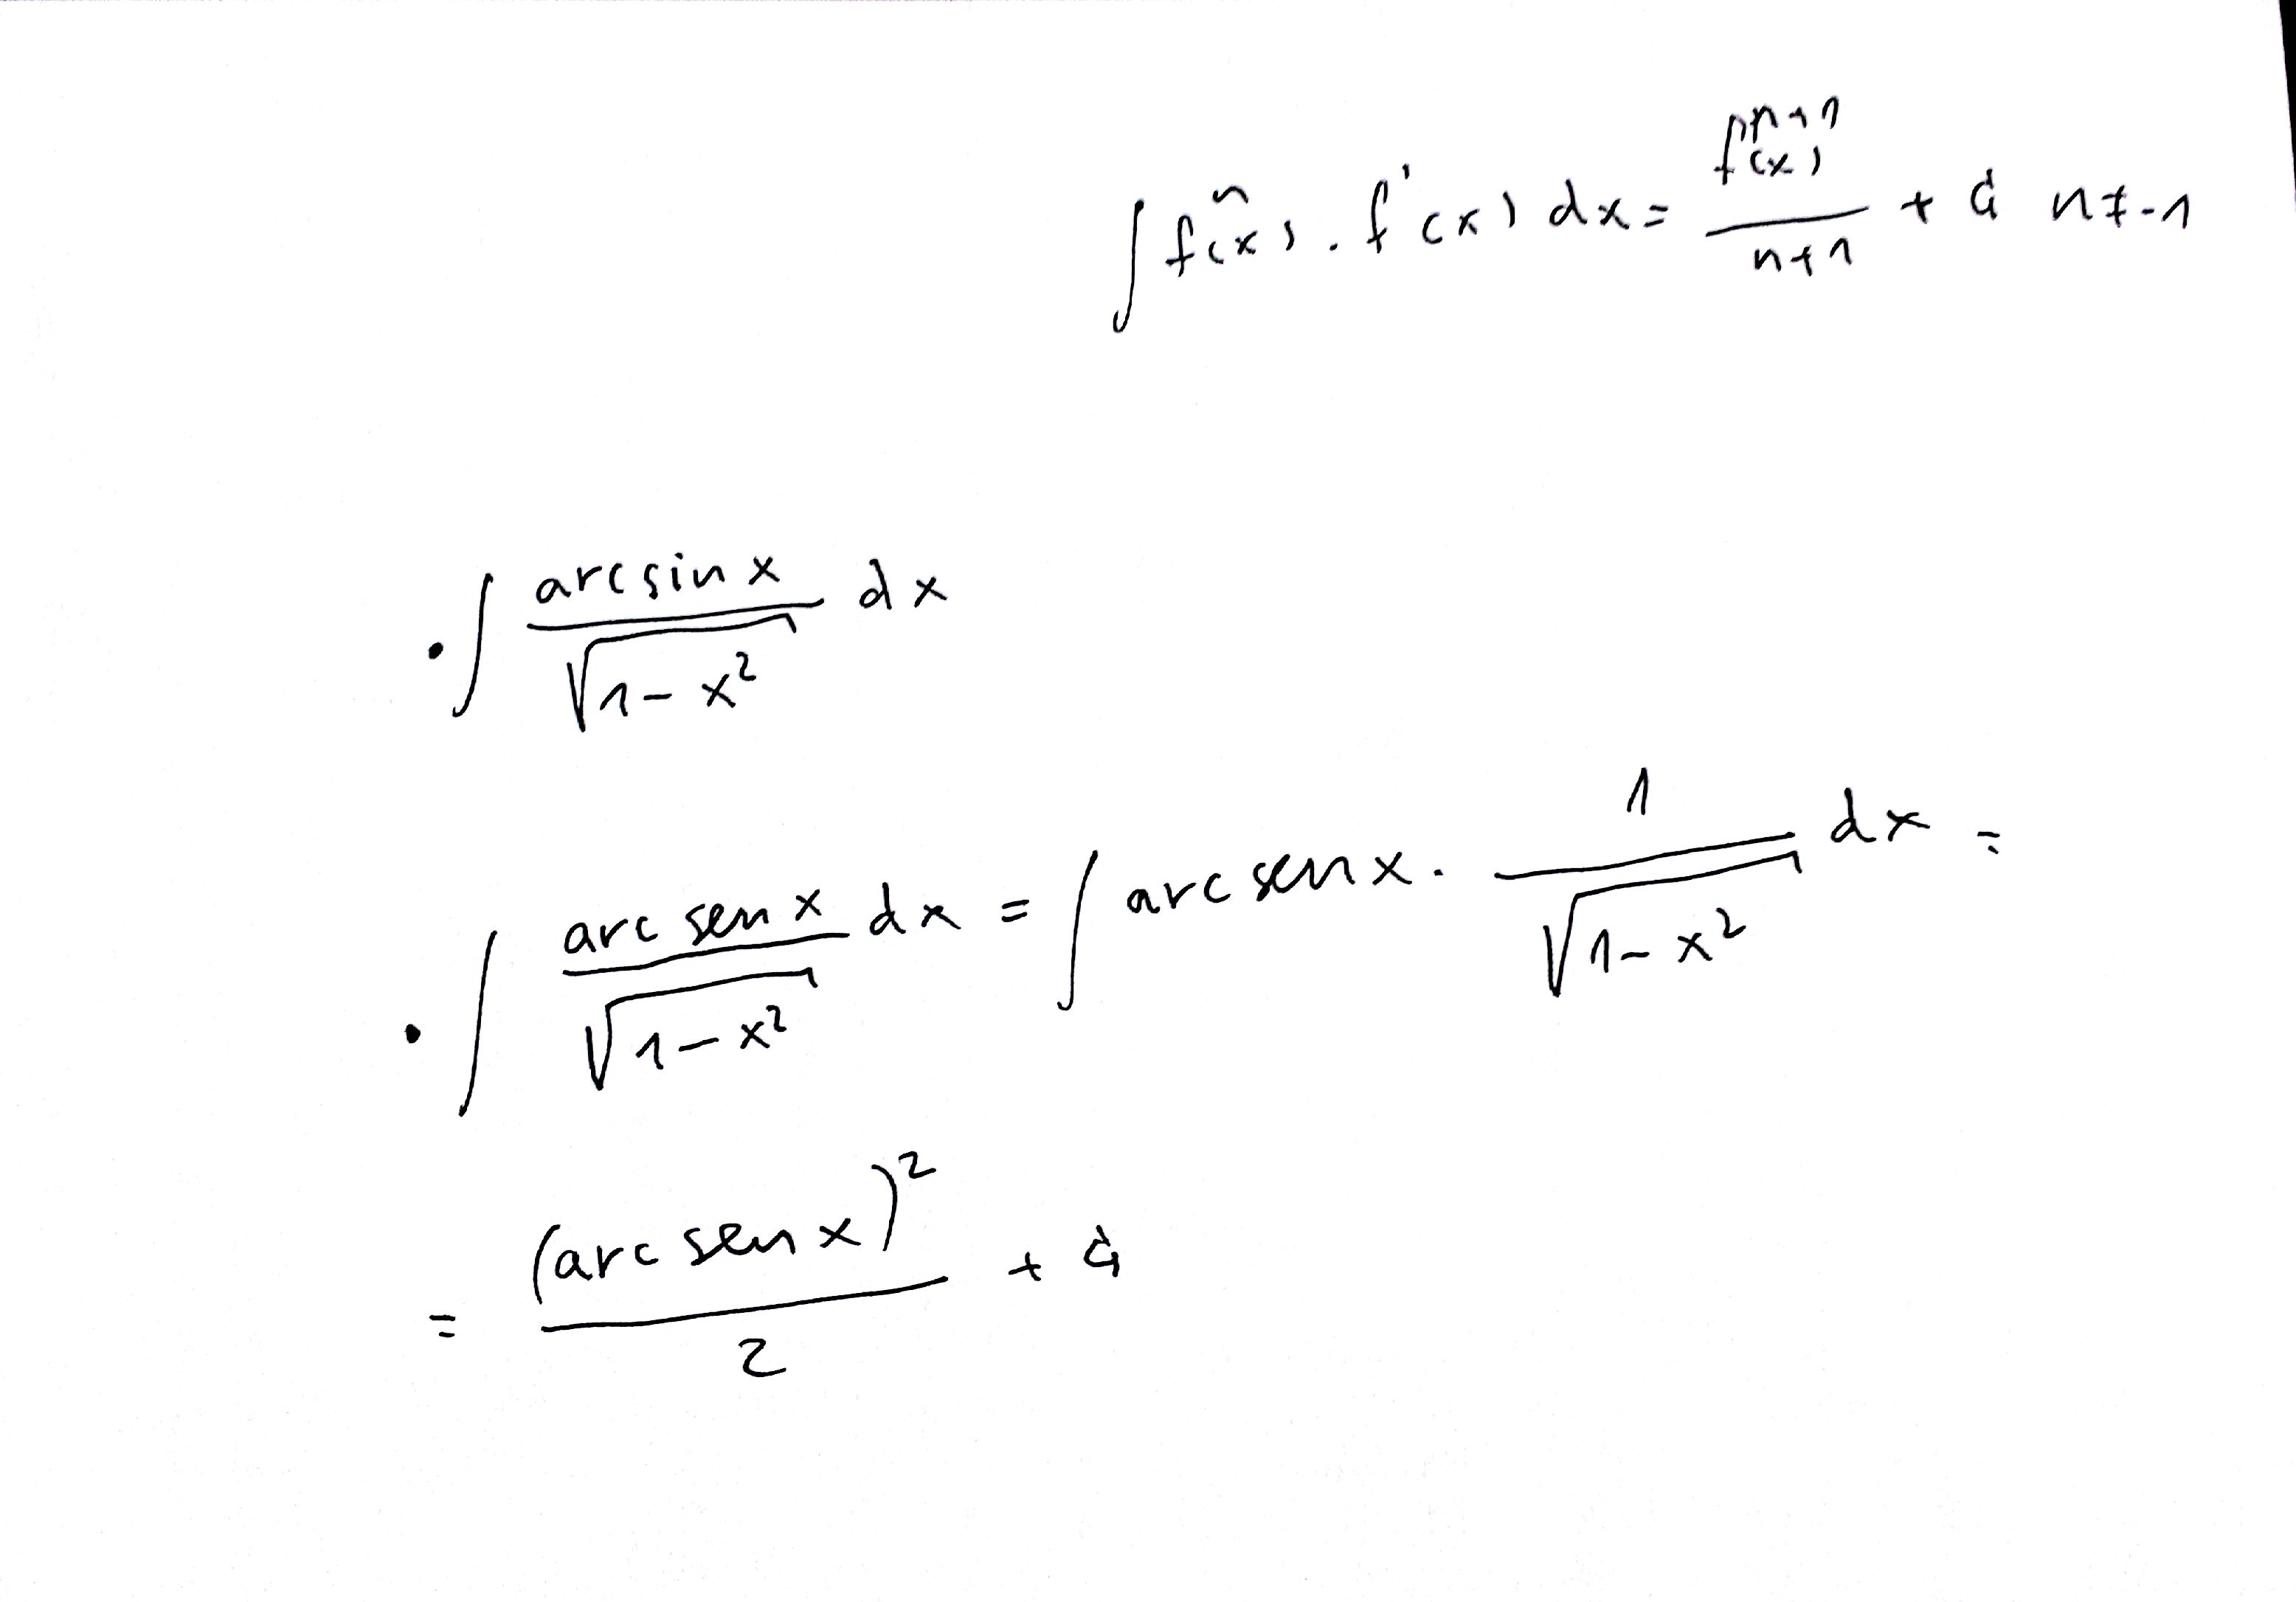 ∫ fⁿ(x) · f'(x) dx = fⁿ⁺¹(x) / n+1 + C n ≠ -1
· ∫ arcsin x / √(1 - x²) dx
· ∫ arc sen x / √(1 - x²) dx = ∫ arc sen x · 1 / √(1 - x²) dx =
= (arc sen x)² / 2 + C